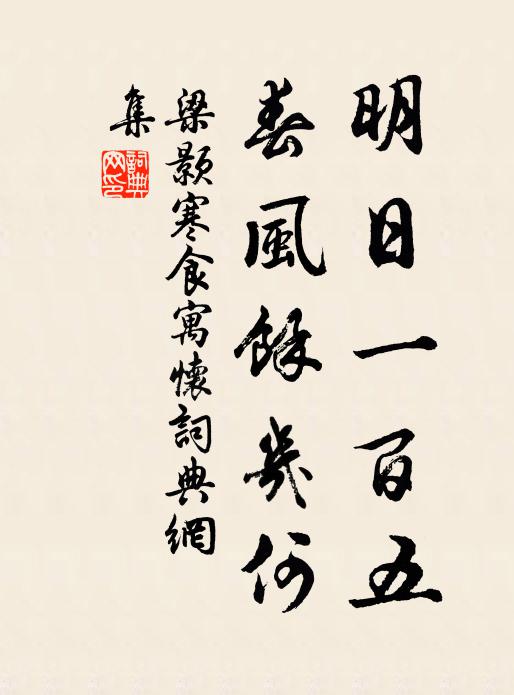 明日一百五
春風餘幾何
梁顥寒食寓懷詞典網
集
詞典
网印